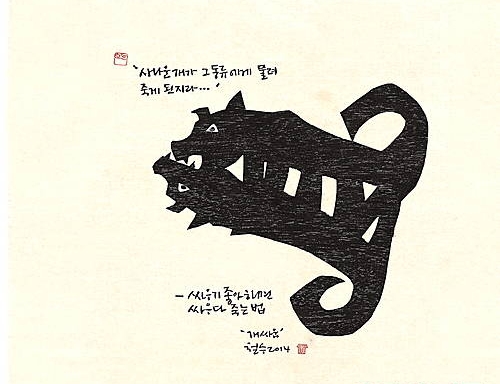 "사나운 개가 그 동류에게 물려
죽게 된지라..."
- 싸우기 좋아하면
싸우다 죽는 법
"개싸움"
철수 2014